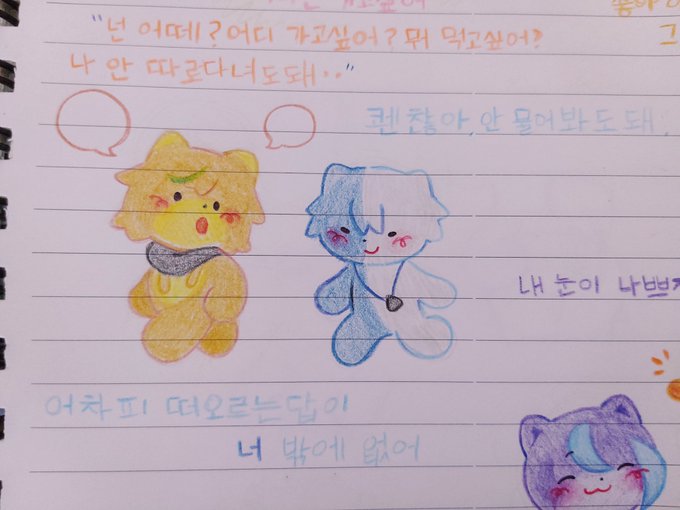 "넌 어떼? 어디 가고싶어? 뭐 먹고싶어?
나 안 따로다녀도돼.."
그
퀜찮아, 안 물어봐도 돼.
내 눈이 나쁘
어차피 떠오르는답이
너 밖에 없어